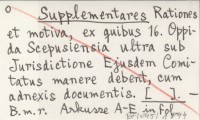 Supplementares Rationes
et motiva, ex quibus 16. Oppi-
da Scepusiensia ultra sub
Jurisdictione Ejusdem Comi-
tatus manere debent, cum
adnexis documentis. [ ]. -
B.m.r. Arkusze A-E in fol